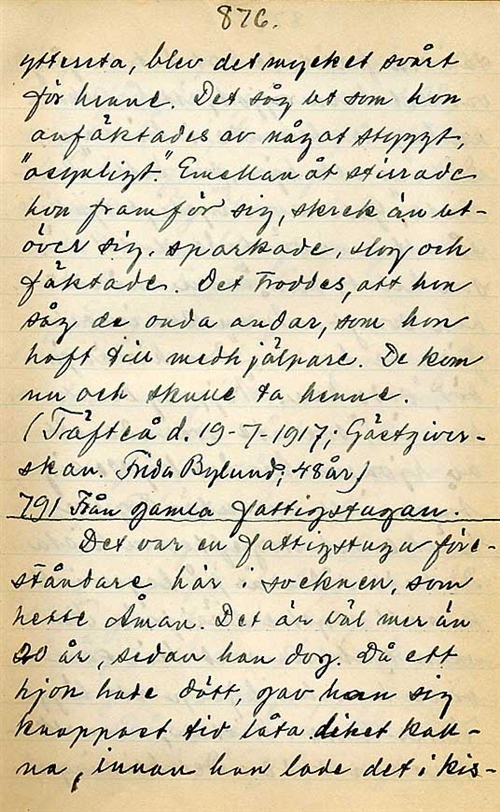 876.
yttersta, blev det mycket svårt
för henne. Det såg ut som hon
anfäktades av något styggt,
"osynligt". Emellanåt stirrade
hon framför sig, skrek än ut-
över sig, sparkade, slog och
fäktade. Det troddes, att hon
såg de onda andar, som hon
haft till medhjälpare. De kom
nu och skulle ta henne.
(Täfteå d. 19-7-1917; Gästgiver-
skan Frida Bylund, 48 år)
791 Från gamla fattigstugan.
Det var en fattigstugu före-
ståndare här i socknen, som
hette Åman. Det är väl mer än
20 år, sedan han dog. Då ett
hjon hade dött, gav han sig
knappast tid låta liket kall-
na, innan han lade det i kis-